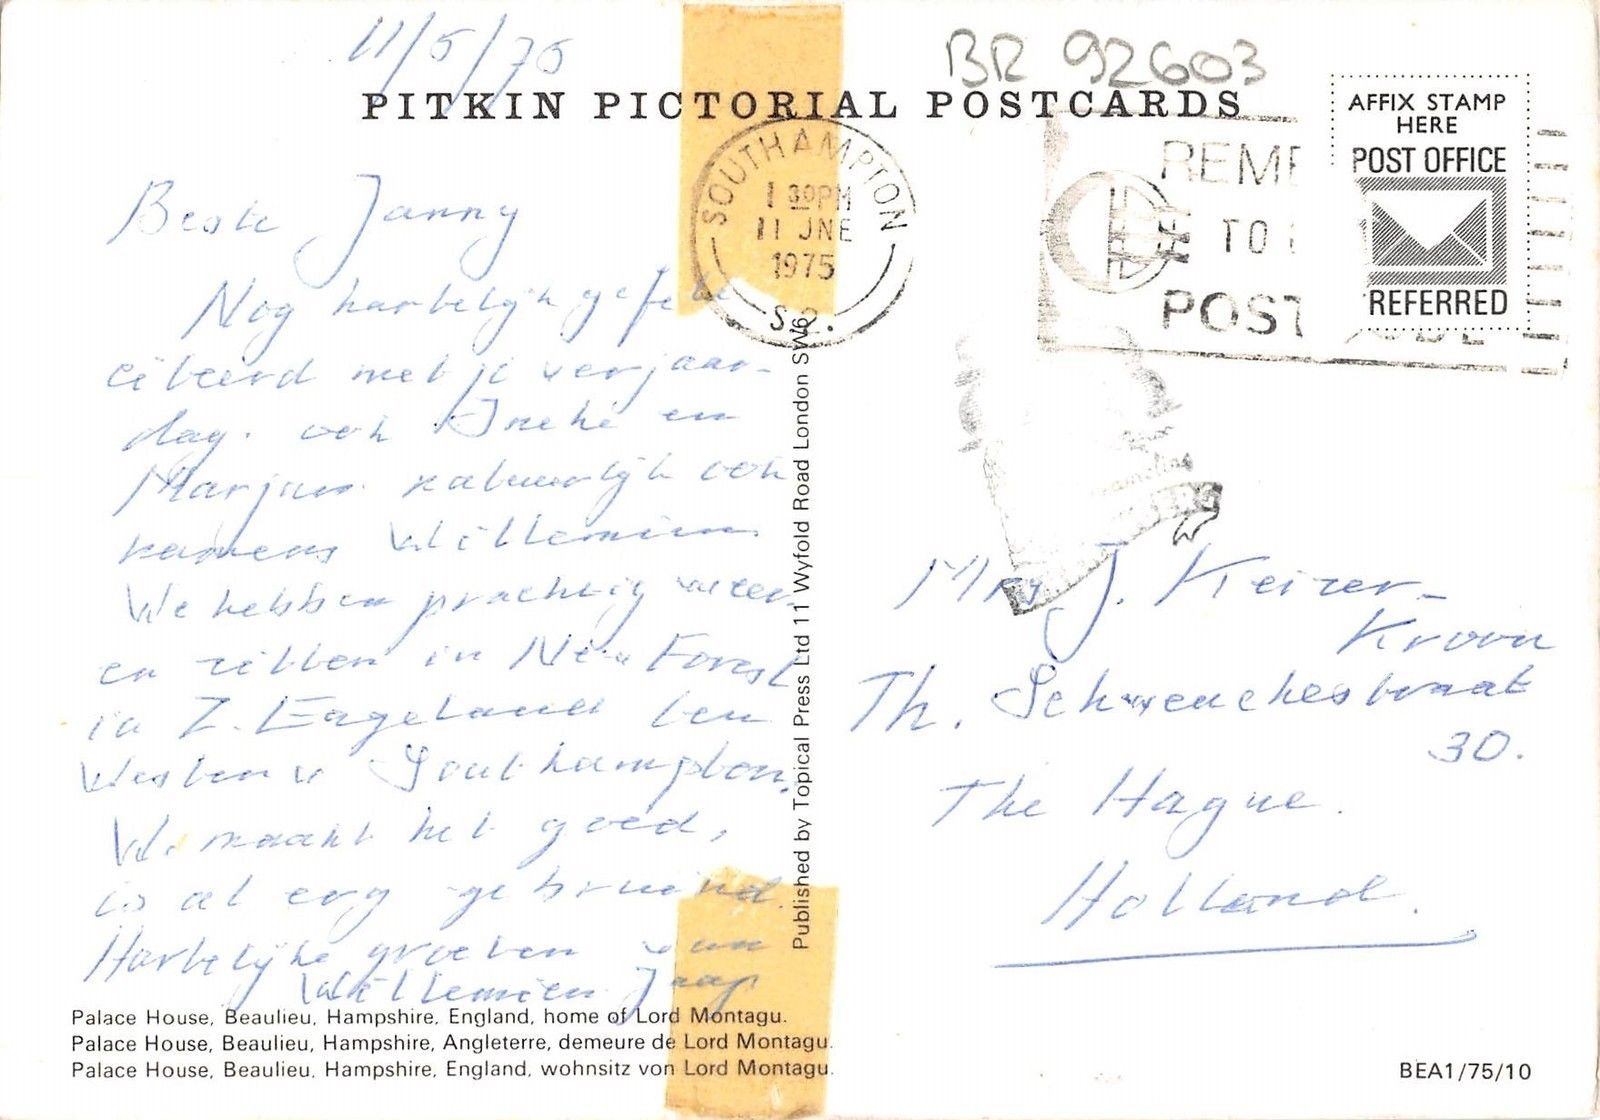 11/6/75
BR 92603
PITKIN PICTORIAL POSTCARDS
AFFIX STAMP
HERE
POST OFFICE
REFERRED
SOUTHAMPTON
1 30PM
11 JNE
1975
S 2.
REME
TO
POST
Beste Janny
Nog hartelijk gefeli
citeerd met je verjaar-
dag. ook Ineke en
Marjan natuurlijk ook
namens Willemien
We hebben prachtig weer
en zitten in New Forest
in Z. Engeland ten
Westen v Southampton.
W. maakt het goed,
is al erg gebruind.
Hartelijke groeten van
Willemien Jaap
Published by Topical Press Ltd 11 Wyfold Road London SW6
Mrs J. Keizer-
Kroon
Th. Schwenckestraat
30.
The Hague.
Holland.
Palace House, Beaulieu, Hampshire, England, home of Lord Montagu.
Palace House, Beaulieu, Hampshire, Angleterre, demeure de Lord Montagu.
Palace House, Beaulieu, Hampshire, England, wohnsitz von Lord Montagu.
BEA1/75/10